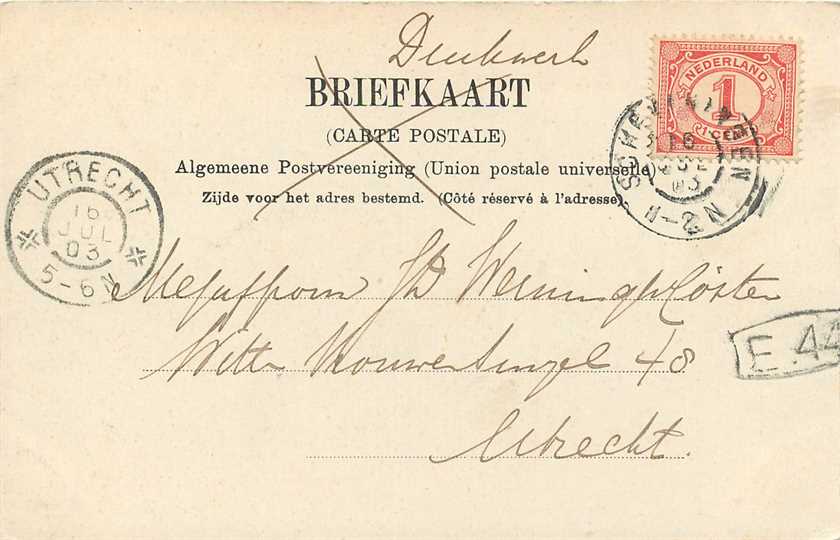 Drukwerk
BRIEFKAART
(CARTE POSTALE)
Algemeene Postvereeniging (Union postale universelle)
Zijde voor het adres bestemd. (Côté réservé à l'adresse).
NEDERLAND
1
1 CENT
SCHEVENINGEN
16
JUL
03
11-2 N
UTRECHT
16
JUL
03
5-6 N
Mejuffrouw
Witte Vrouwensingel 48
Utrecht.
E 44